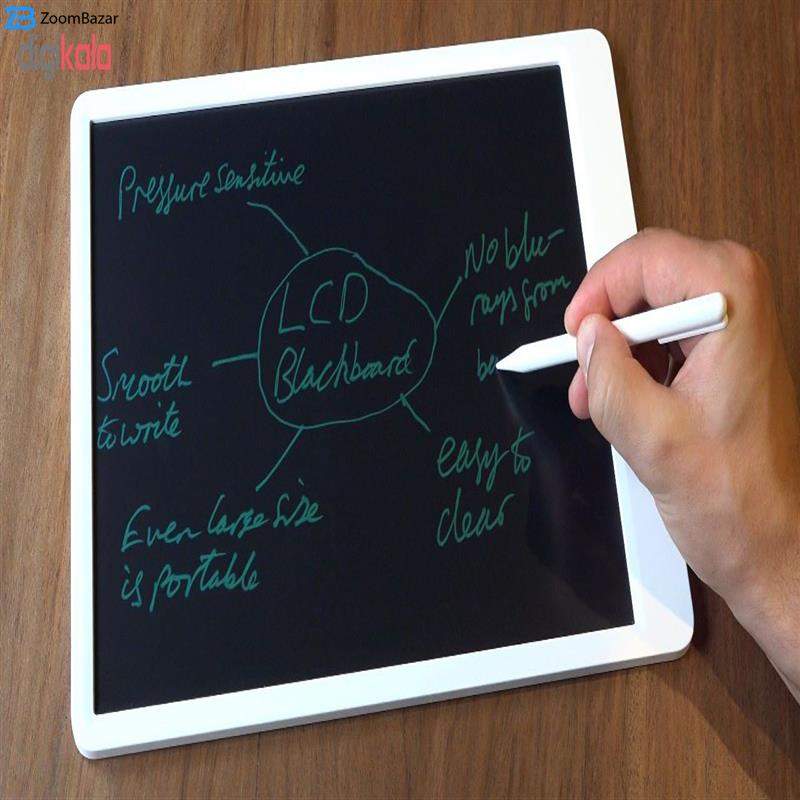 ZB ZoomBazar
digikala
Pressure sensitive
No blu-
rays from
LCD
Blackboard
Smooth
to write
easy to
clear
Even large size
is portable